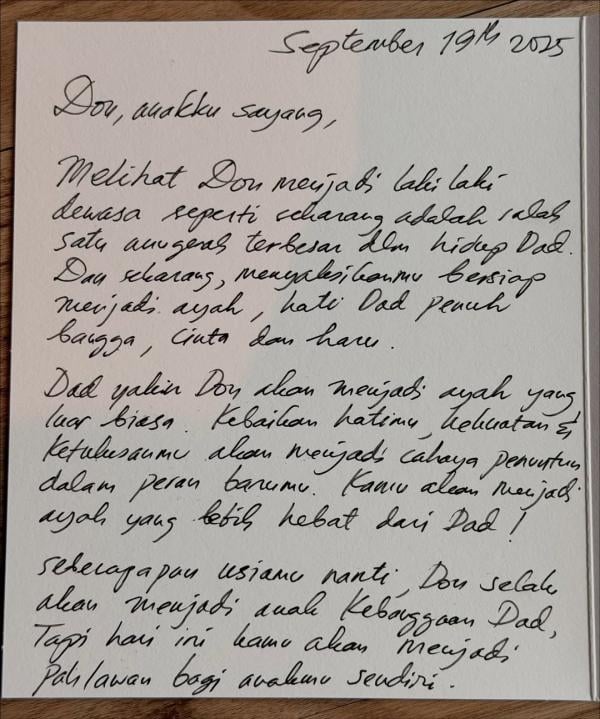 September 19th 2025
Don, anakku sayang,
Melihat Don menjadi laki laki
dewasa seperti sekarang adalah salah
satu anugerah terbesar dlm hidup Dad.
Dan sekarang, menyaksikanmu bersiap
menjadi ayah, hati Dad penuh
bangga, cinta dan haru.
Dad yakin Don akan menjadi ayah yang
luar biasa. Kebaikan hatimu, kekuatan &
ketulusanmu akan menjadi cahaya penuntun
dalam peran barumu. Kamu akan menjadi
ayah yang lebih hebat dari Dad!
seberapapun usiamu nanti, Don selalu
akan menjadi anak Kebanggaan Dad,
Tapi hari ini kamu akan menjadi
Pahlawan bagi anakmu sendiri.